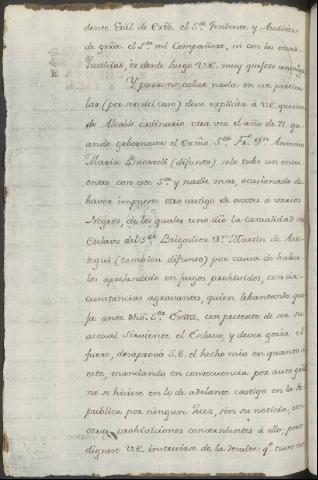 dente Gral. de Exto. el Sor. Teniente y Auditor
de grra. el Sor. mi Compañero, ni con los otros
Justicias, es desde luego V.E. muy quejoso conmigo
Y para no callar nada en este particu-
lar (por ser del caso) devo explicar á V.E. que sien-
do Alcalde ordinario otra vez el año de 71. qu-
ando governava el Exmo. Sor. Fr. Dn. Antonio
Maria Bucareli (difunto) solo tube un encu-
entro con este Sor. y nadie mas, ocasionado de
haver impuesto otro castigo de azotes á varios
Negros, de los quales uno dió la casualidad ser
Esclavo del Sor. Brigadier Dn. Martin de Aros-
tegui (tambien difunto) por causa de haber-
los aprehendido en juegos prohividos, con cir-
cunstancias agravantes, quien lebantando que-
ja ante dho. Sor. Exmo. con pretexto de ser su
actual sirviente el Esclavo, y dever gozar el
fuero, desaprovó S.E. el hecho mio en quanto á
esto, mandando en consecuencia por auto qe.
no se hiciese en lo de adelante castigo en la Re-
publica por ningun Juez, sin su noticia, con
otras prohiviciones concernientes á ello; pero
dignese V.E. instruirse de la resulta qe. tuvo